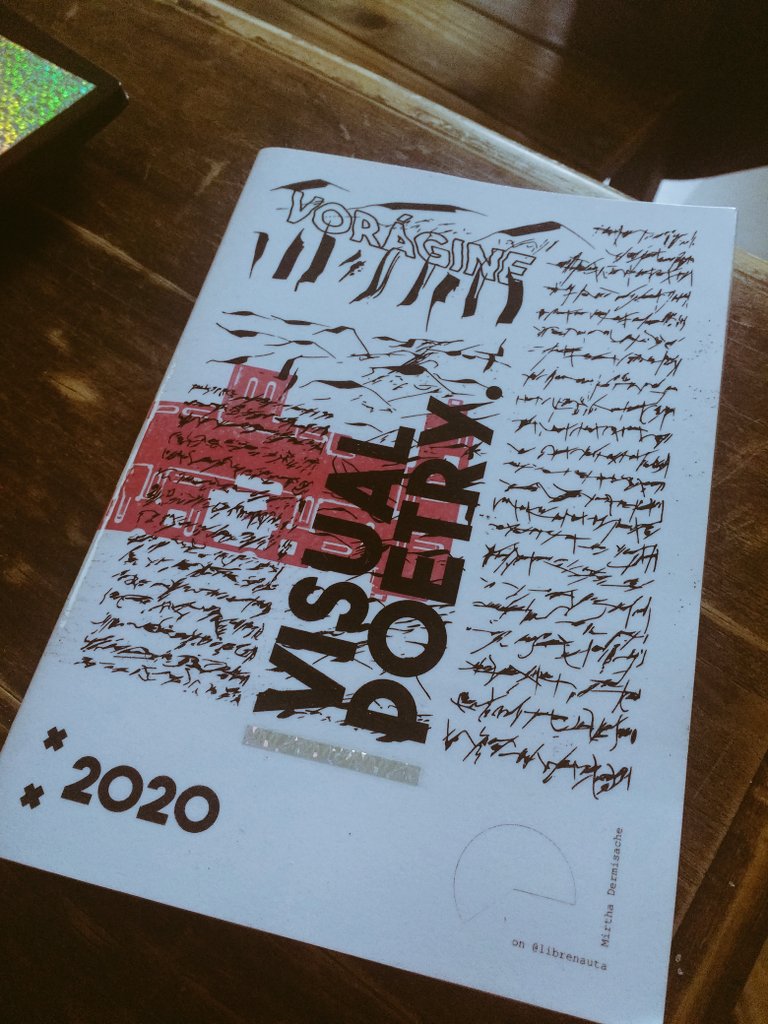 VORÁGINE
VISUAL
POETRY.
2020
Mirtha Dermisache
on @librenauta